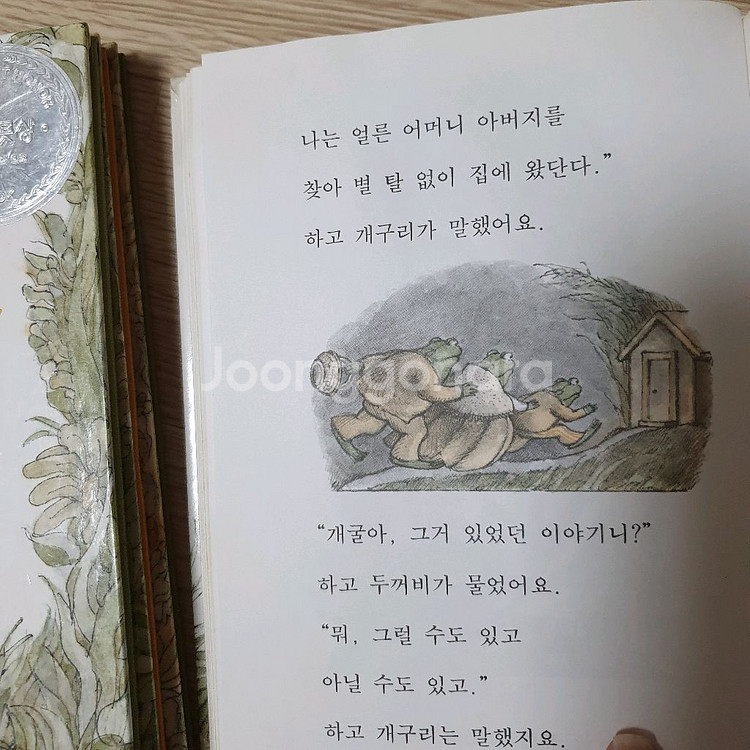 나는 얼른 어머니 아버지를
찾아 별 탈 없이 집에 왔단다.”
하고 개구리가 말했어요.
Joonggonara
“개굴아, 그거 있었던 이야기니?”
하고 두꺼비가 물었어요.
“뭐, 그럴 수도 있고
아닐 수도 있고.”
하고 개구리는 말했지요.